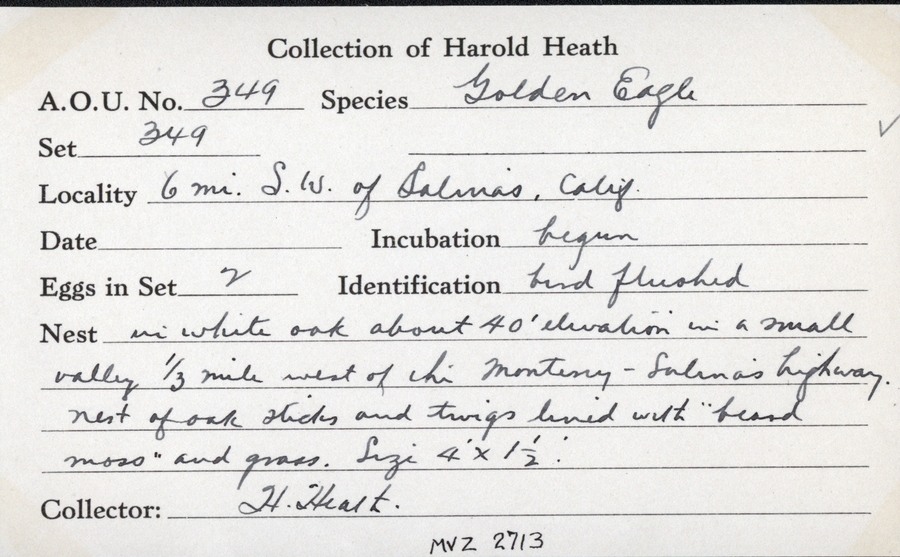 Collection of Harold Heath
A.O.U. No. 349 Species Golden Eagle
Set 349
Locality 6 mi. S.W. of Salinas, Calif.
Date Incubation begun
Eggs in Set 2 Identification bird flushed
Nest in white oak about 40' elevation in a small
valley 1/3 mile west of the Monterey - Salinas highway.
nest of oak sticks and twigs lined with "beard
moss" and grass. Size 4' x 1 1/2'.
Collector: H. Heath.
MVZ 2713